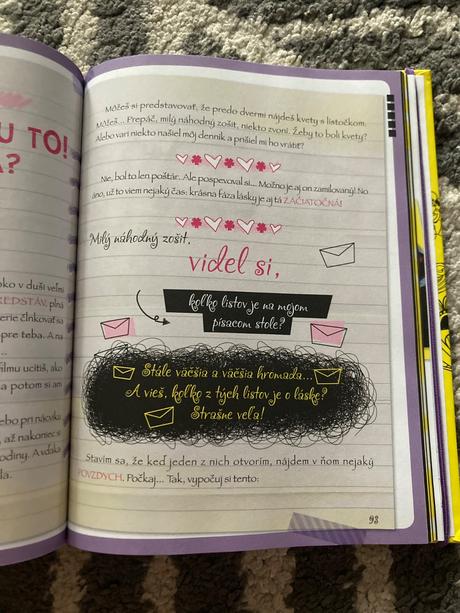 U TO!
A?
oko v duši veľmi
REDSTÁV, plná
erie čínkovať sa
pre teba. A na
...
filmu ucítiš, ako
a potom si ani
ebo pri nácvika
, až nakoniec s
odiny. A vďaka
la.
Môžeš si predstavovať, že predo dvermi nájdeš kvety s lístočkom.
Môžeš... Prepáč, milý náhodný zošit, niekto zvoní. Žeby to boli kvety?
Alebo vari niekto našiel môj denník a prišiel mi ho vrátiť?
Nie, bol to len poštár. Ale pospevoval si... Možno je aj on zamilovaný! No
áno, už to viem nejaký čas: krásna fáza lásky je aj tá ZAČIATOČNÁ!
Milý náhodný zošit,
videl si,
koľko listov je na mojom
písacom stole?
Stále väčšia a väčšia hromada...
A vieš, koľko z tých listov je o láske?
Strašne veľa!
Stavím sa, že keď jeden z nich otvorím, nájdem v ňom nejaký
POVZDYCH. Počkaj... Tak, vypočuj si tento:
93